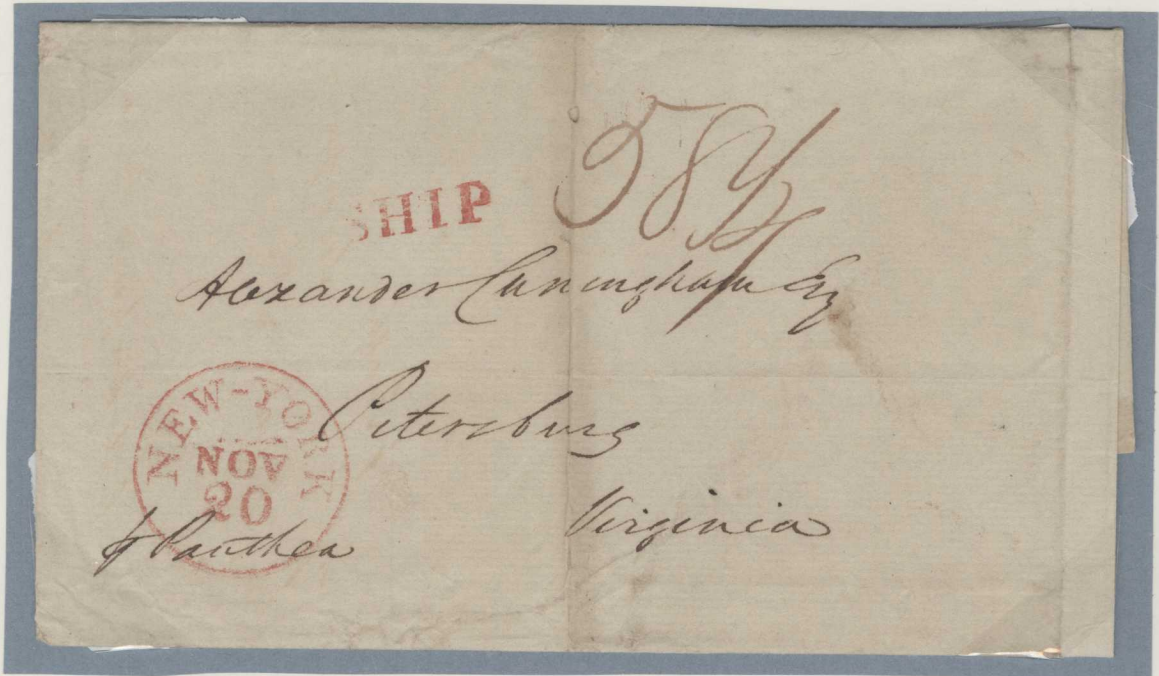 SHIP 58¼
Alexander Cuningham Esq
Petersburg
Virginia
NEW-YORK
NOV
20
p Panthea